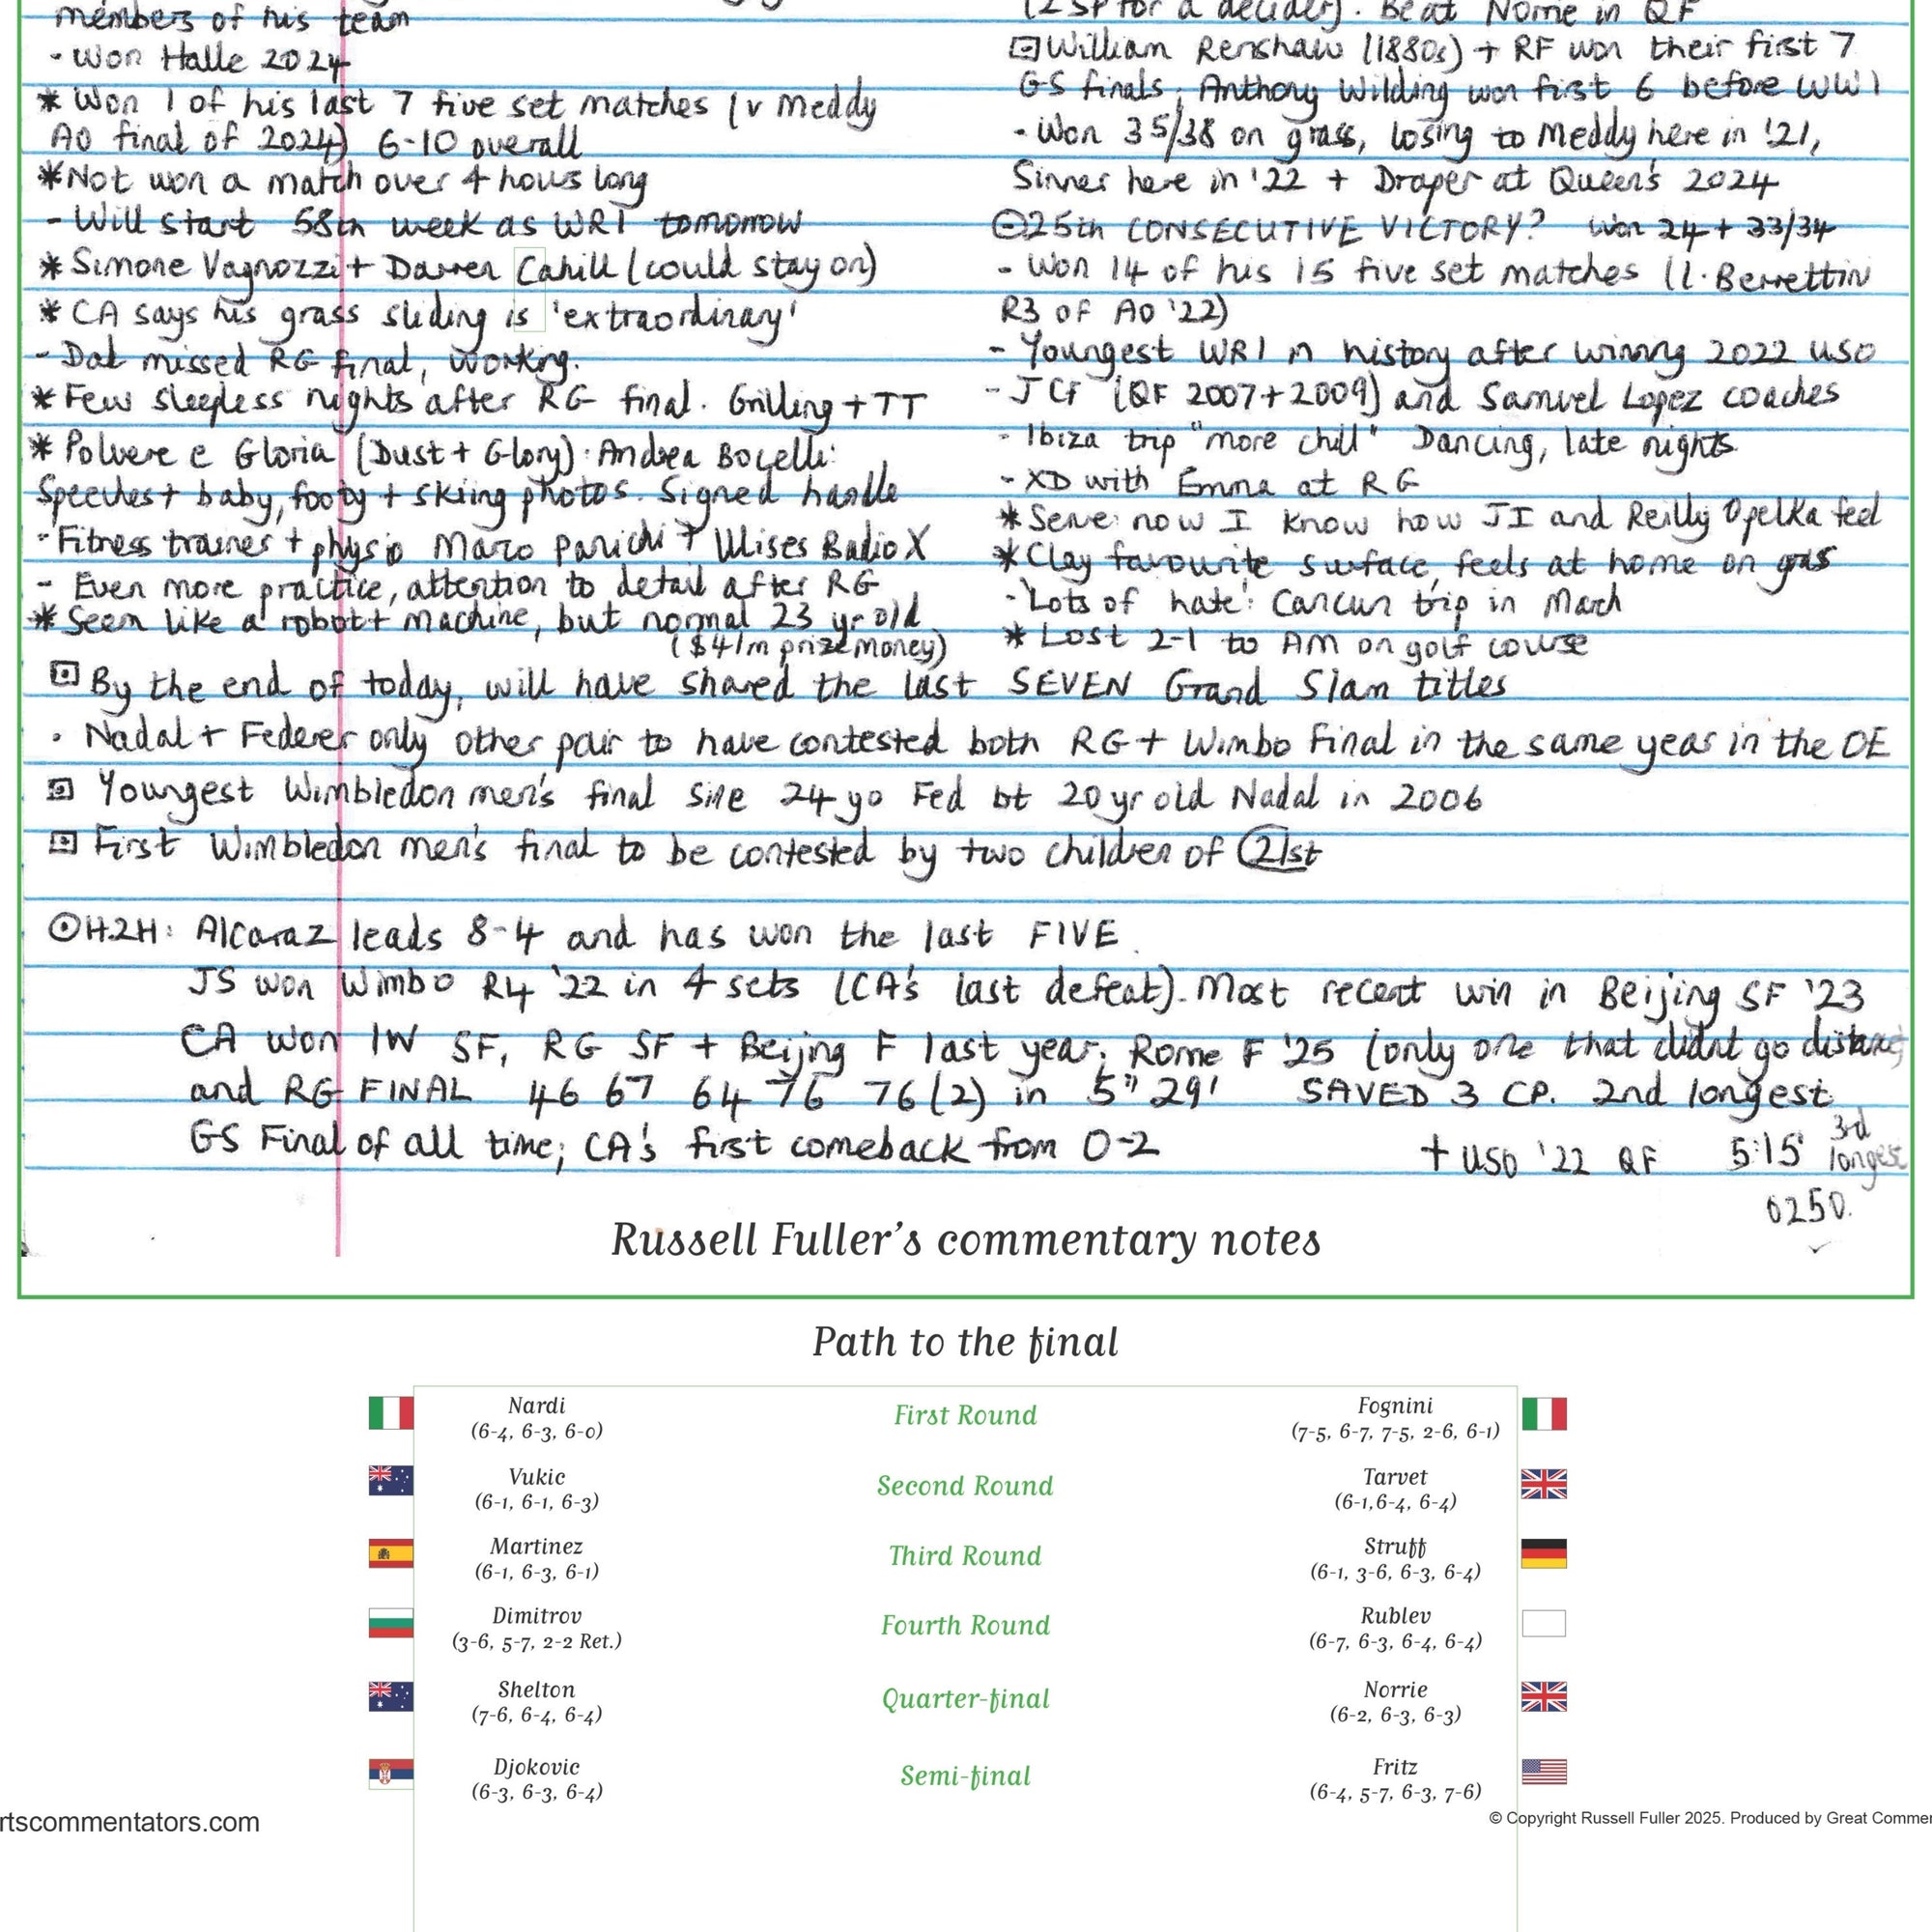 members of his team
- Won Halle 2024
* Won 1 of his last 7 five set matches (v Meddy
AO final of 2024) 6-10 overall
* Not won a match over 4 hours long
- Will start 58th week as WR1 tomorrow
* Simone Vagnozzi + Darren Cahill (could stay on)
* CA says his grass sliding is 'extraordinary'
- Dad missed RG final, working.
* Few sleepless nights after RG final. Grilling + TT
* Polvere e Gloria (Dust + Glory): Andrea Bocelli:
Speeches + baby, footy + skiing photos. Signed handle
- Fitness trainer + physio Marco Panichi + Ulises Badio X
- Even more practice, attention to detail after RG
* Seen like a robot + machine, but normal 23 yr old
($41m prize money)
(2 SP for a decider). Beat Norrie in QF
William Renshaw (1880s) + RF won their first 7
GS finals; Anthony Wilding won first 6 before WW1
- Won 35/38 on grass, losing to Meddy here in '21,
Sinner here in '22 + Draper at Queen's 2024
25th CONSECUTIVE VICTORY? Won 24 + 33/34
- Won 14 of his 15 five set matches (l. Berrettini
R3 of AO '22)
- Youngest WR1 in history after winning 2022 USO
- JCF (QF 2007+2009) and Samuel Lopez coaches
- Ibiza trip "more chill" Dancing, late nights.
- XD with Emma at RG
* Serve: now I know how JI and Reilly Opelka feel
* Clay favourite surface, feels at home on grass
- 'Lots of hate': Cancun trip in March
* Lost 2-1 to AM on golf course
By the end of today, will have shared the last SEVEN Grand Slam titles
· Nadal + Federer only other pair to have contested both RG + Wimbo final in the same year in the OE
Youngest Wimbledon men's final sine 24 yo Fed bt 20 yr old Nadal in 2006
First Wimbledon men's final to be contested by two children of 21st
H2H: Alcaraz leads 8-4 and has won the last FIVE.
JS won Wimbo R4 '22 in 4 sets (CA's last defeat). Most recent win in Beijing SF '23
CA won IW SF, RG SF + Beijing F last year; Rome F '25 (only one that didnt go distance)
and RG FINAL 46 67 64 76 76(2) in 5" 29' SAVED 3 CP. 2nd longest
GS Final of all time; CA's first comeback from 0-2
+ USO '22 QF 5:15 3rd longest
0250.
Russell Fuller's commentary notes
Path to the final
Nardi First Round Fognini
(6-4, 6-3, 6-0) (7-5, 6-7, 7-5, 2-6, 6-1)
Vukic Second Round Tarvet
(6-1, 6-1, 6-3) (6-1,6-4, 6-4)
Martinez Third Round Struff
(6-1, 6-3, 6-1) (6-1, 3-6, 6-3, 6-4)
Dimitrov Fourth Round Rublev
(3-6, 5-7, 2-2 Ret.) (6-7, 6-3, 6-4, 6-4)
Shelton Quarter-final Norrie
(7-6, 6-4, 6-4) (6-2, 6-3, 6-3)
Djokovic Semi-final Fritz
(6-3, 6-3, 6-4) (6-4, 5-7, 6-3, 7-6)
rtscommentators.com
© Copyright Russell Fuller 2025. Produced by Great Commen